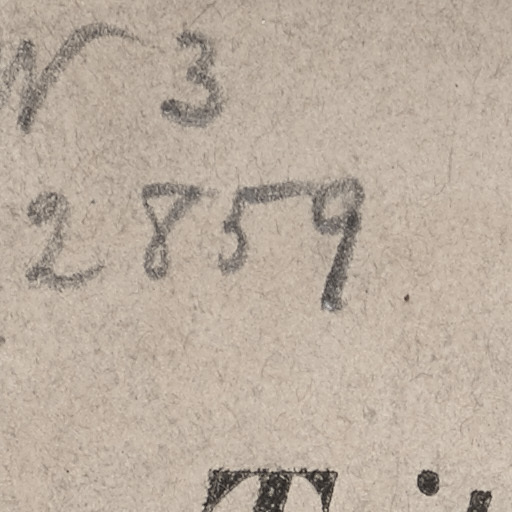 N 3
2859